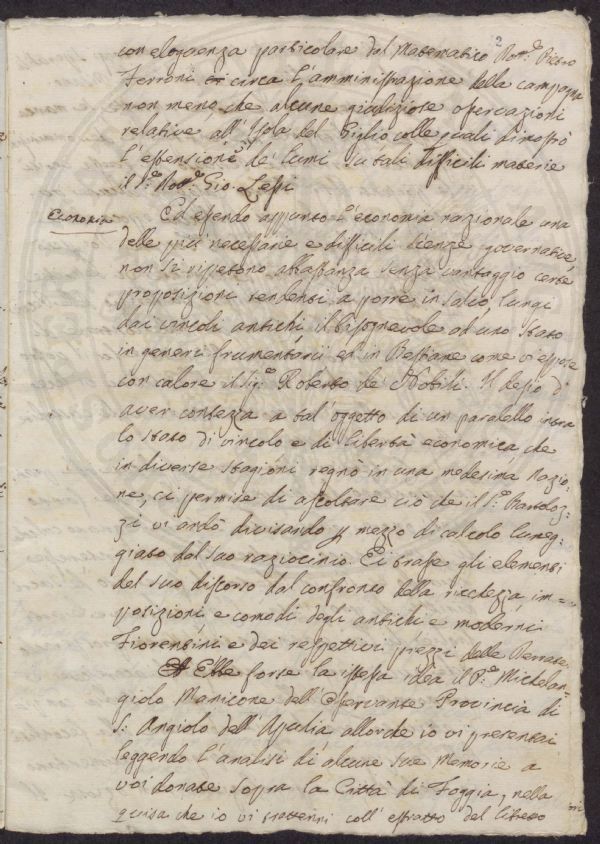 2
con eloquenza particolare dal Matematico Pon.e Pietro
Ferroni circa l'amministrazione della campagna
non meno che alcune giudiziose osservazioni
relative all'Isola del Giglio colle quali dimostrò
l'estensione de' lumi su tali difficili materie
il S.r Gio. Lessi
Economia
Ed essendo appunto l'economia nazionale una
delle più necessarie e difficili scienze governative,
non si ripetono abbastanza senza vantaggio certe
proposizioni tendenti a porre in salvo, lungi
dai vincoli antichi il bisognevole ad uno Stato
in generi frumentarii ed in Bestiame come vi espose
con calore il Sig.r Roberto de' Nobili. Il desio d'
aver contezza a tal'oggetto di un paralello intra
lo stato di vincolo e di libertà economica che
in diverse stagioni regnò in una medesima Nazio-
ne, ci permise di ascoltare ciò che il S.r Bartoloz-
zi vi andò divisando p mezzo di calcolo lumeg-
giato dal suo raziocinio. Ei trasse gli elementi
del suo discorso dal confronto della ricchezza im-
posizioni e comodi degli antichi e moderni
Fiorentini e dei respettivi prezzi delle Derrate.
Ebbe forse la istessa idea il P.e Michelan-
giolo Manicone dell'Osservante Provincia di
S. Angiolo dell'Apulia allorchè io vi presentai
leggendo l'analisi di alcune sue Memorie a
voi donate sopra la Città di Foggia, nella
guisa che io vi trattenni coll'estratto del libretto